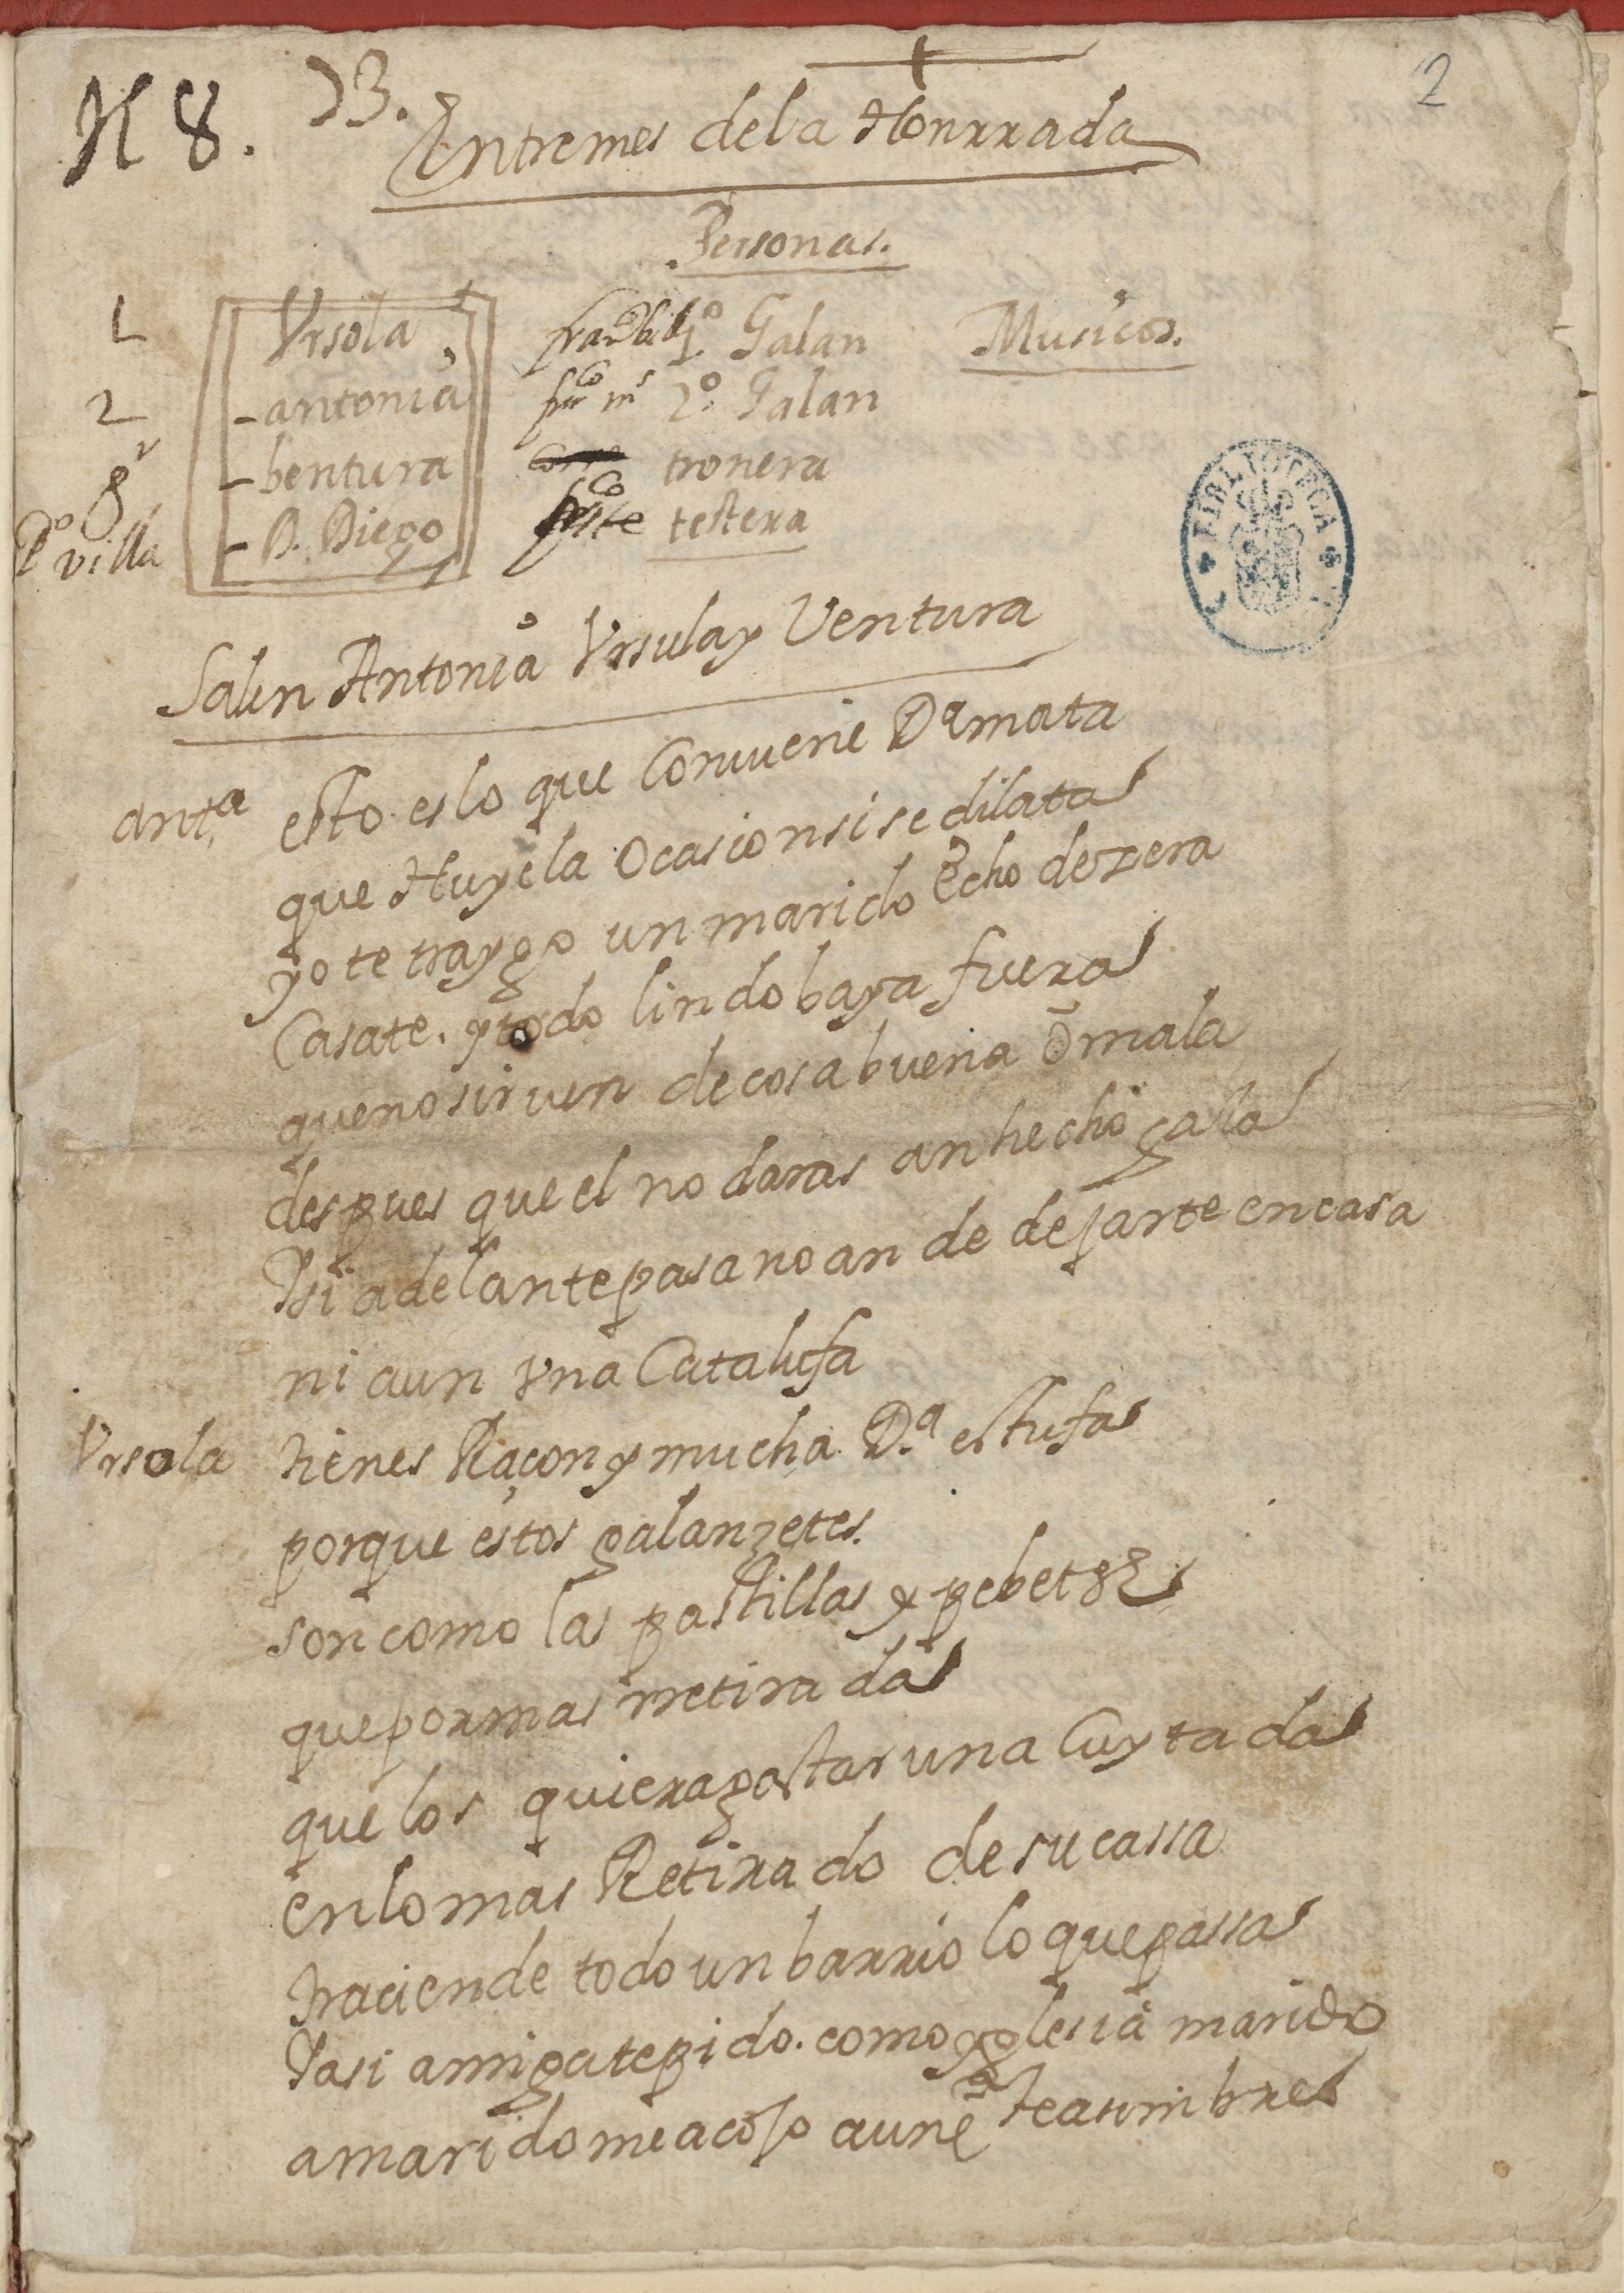 N 8. 33. 2
Entremes dela Honrrada
Personas.
1 Vrsola 1º Galan Musicos.
2 - antonia 2º Galan
- bentura tronera
Pº villa - D. Diego testera
Salen Antonia Vrsula y Ventura
antª esto es lo que Conuiene Dª mata
que Huye la Ocasion si se dilata
yo te traygo un marido Echo de zera
Casate. y todo lindo baya fuera
que no siruen de cosa buena ō mala
despues que el no daras an hecho gala
Y si adelante pasa no an de dejarte en casa
ni aun Vna Catalufa
Vrsola tienes Raçon y mucha Dª estufa
porque estos galanzetes.
son como las pastillas y pebetes
que por mas rretirada
que los quiera gastar una Cuytada
en lo mas Retirado de su cassa
traciende todo un barrio lo que passa
Y asi amiga te pido. como yglesia marido
a marido me acojo aunq̃ te asombres